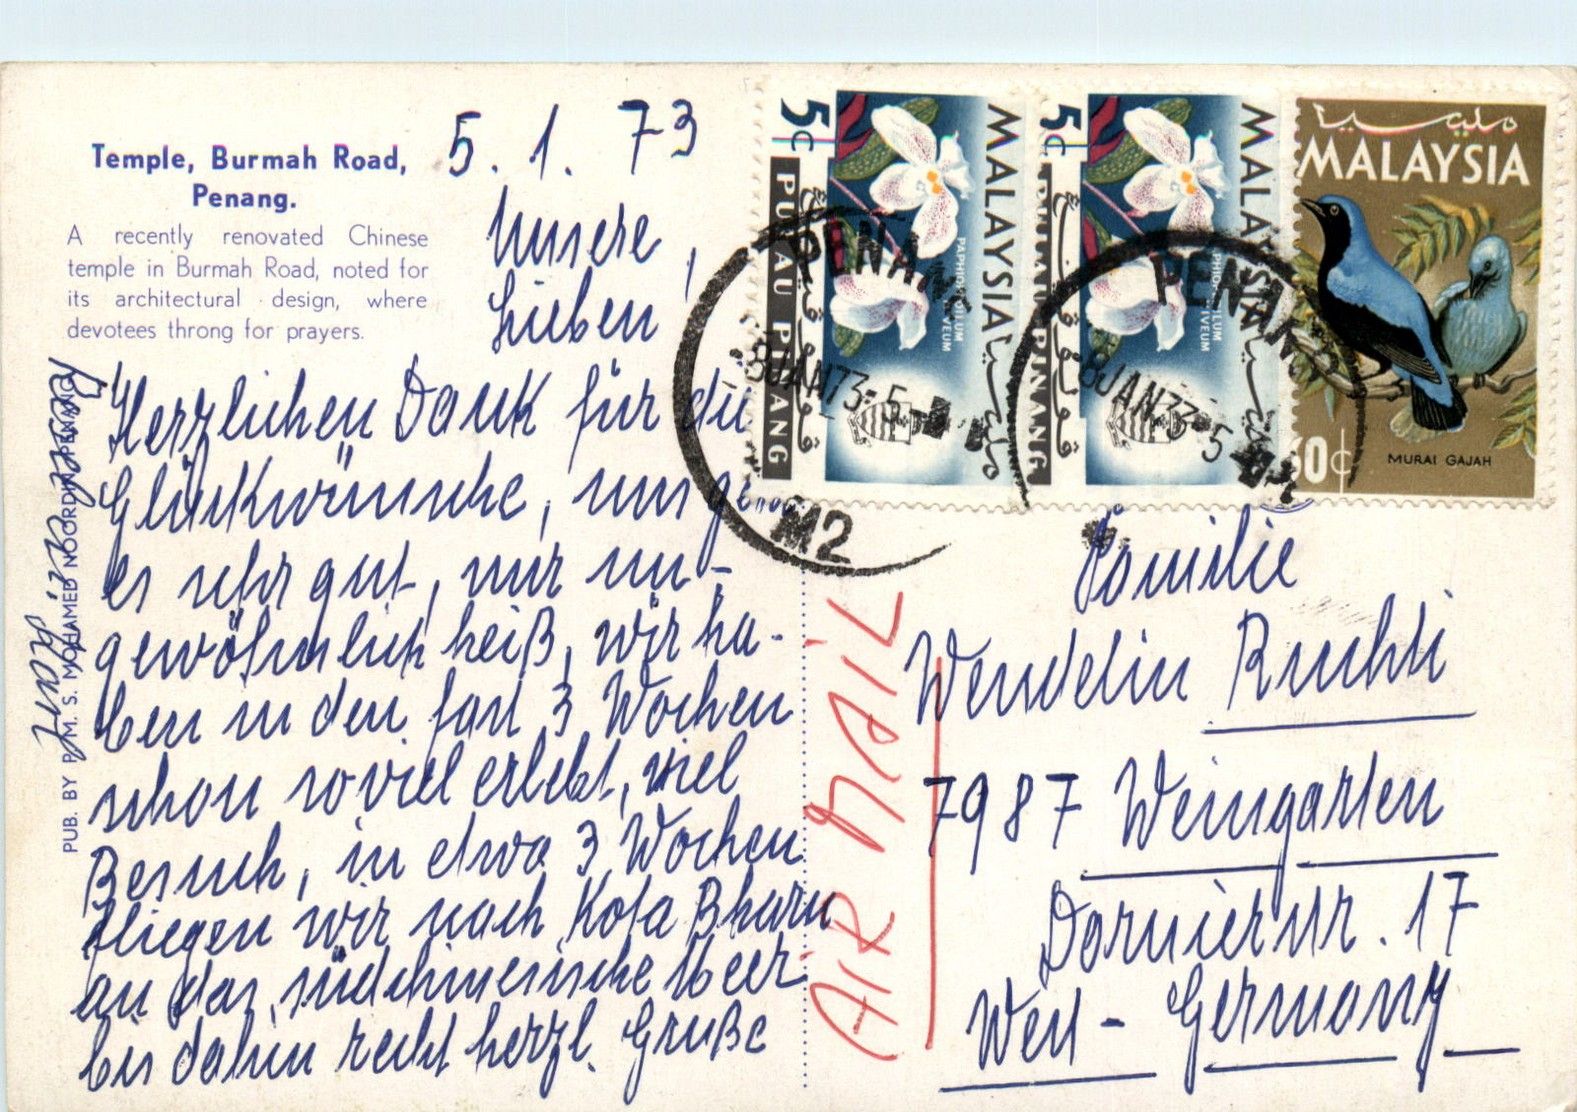 Temple, Burmah Road,
Penang.
A recently renovated Chinese
temple in Burmah Road, noted for
its architectural design, where
devotees throng for prayers.
PUB. BY P. M. S. MOHAMED NOORDIN, PENANG
5. 1. 73
Unsere
Lieben!
Herzlichen Dank für die
Glückwünsche, uns geht
es sehr gut, nur un-
gewöhnlich heiß, wir ha-
ben in den fast 3 Wochen
schon soviel erlebt, viel
Besuch, in etwa 3 Wochen
fliegen wir nach Kota Bharu
an das südchinesische Meer
bis dahin recht herzl. Grüße
5c
PULAU PINANG
فولاو فينڠ
MALAYSIA
مليسيا
PAPHIOPEDILUM
NIVEUM
5c
PULAU PINANG
فولاو فينڠ
MALAYSIA
مليسيا
PAPHIOPEDILUM
NIVEUM
مليسيا
MALAYSIA
50c
MURAI GAJAH
PENANG
8 JAN 73-5
M2
PENANG
8 JAN 73-5
AIR MAIL
Familie
Wendelin Ruchti
7987 Weingarten
Dornierstr. 17
West-Germany